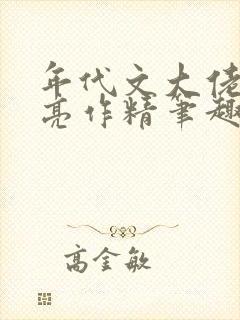 年代文大佬
亮作精笔趣
高金敏